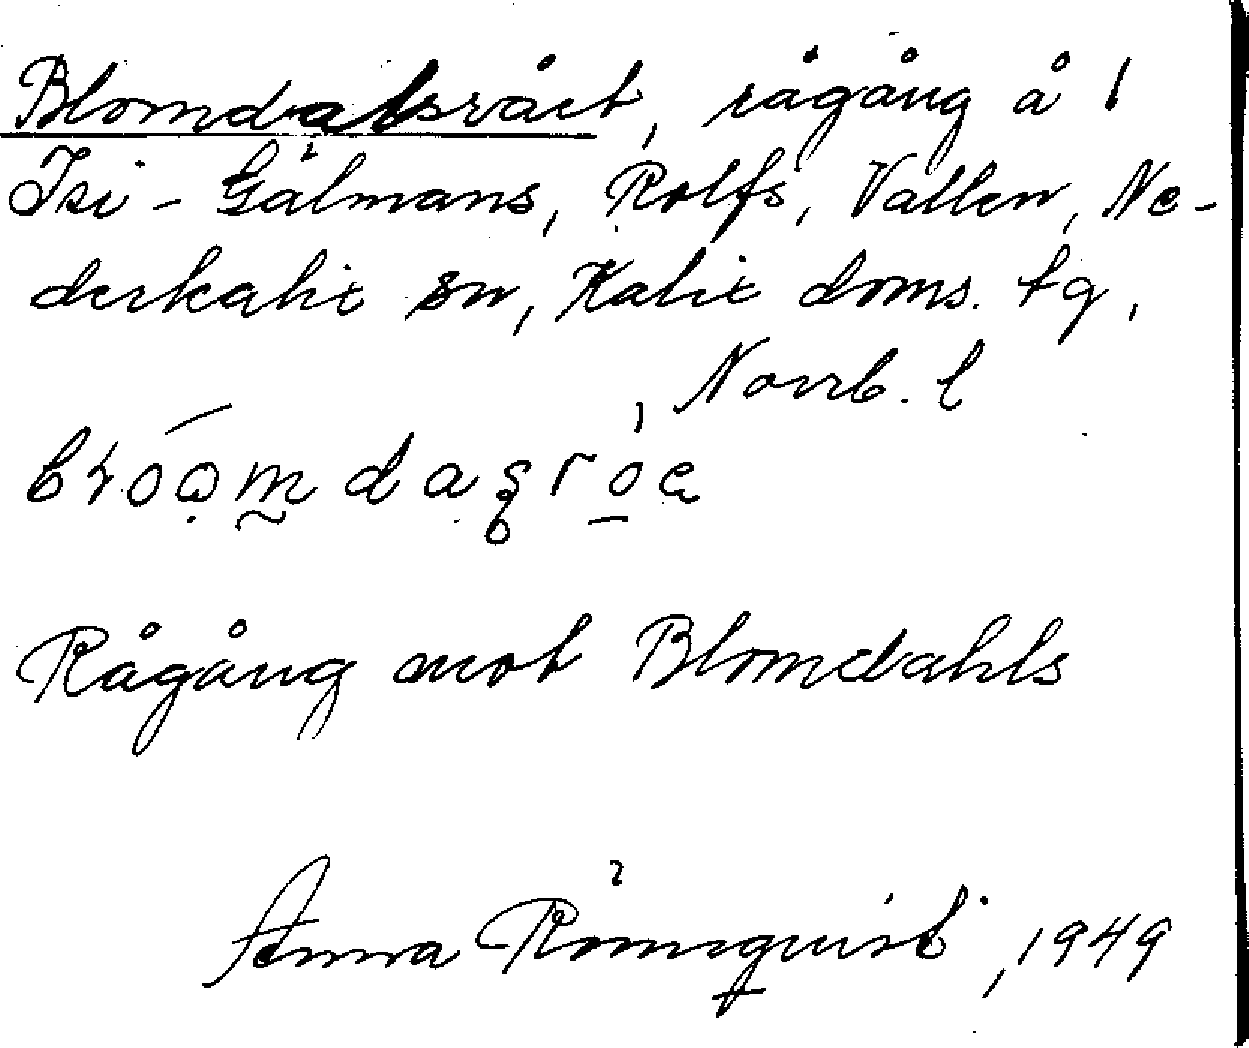 Blomdalsrået, rågång å 1
Isi-Gålmans, Rolfs, Vallen, Ne-
derkalix sn, Kalix doms. tg,
Norrb. l
Rågång mot Blomdahls
Anna Rönnquist, 1949